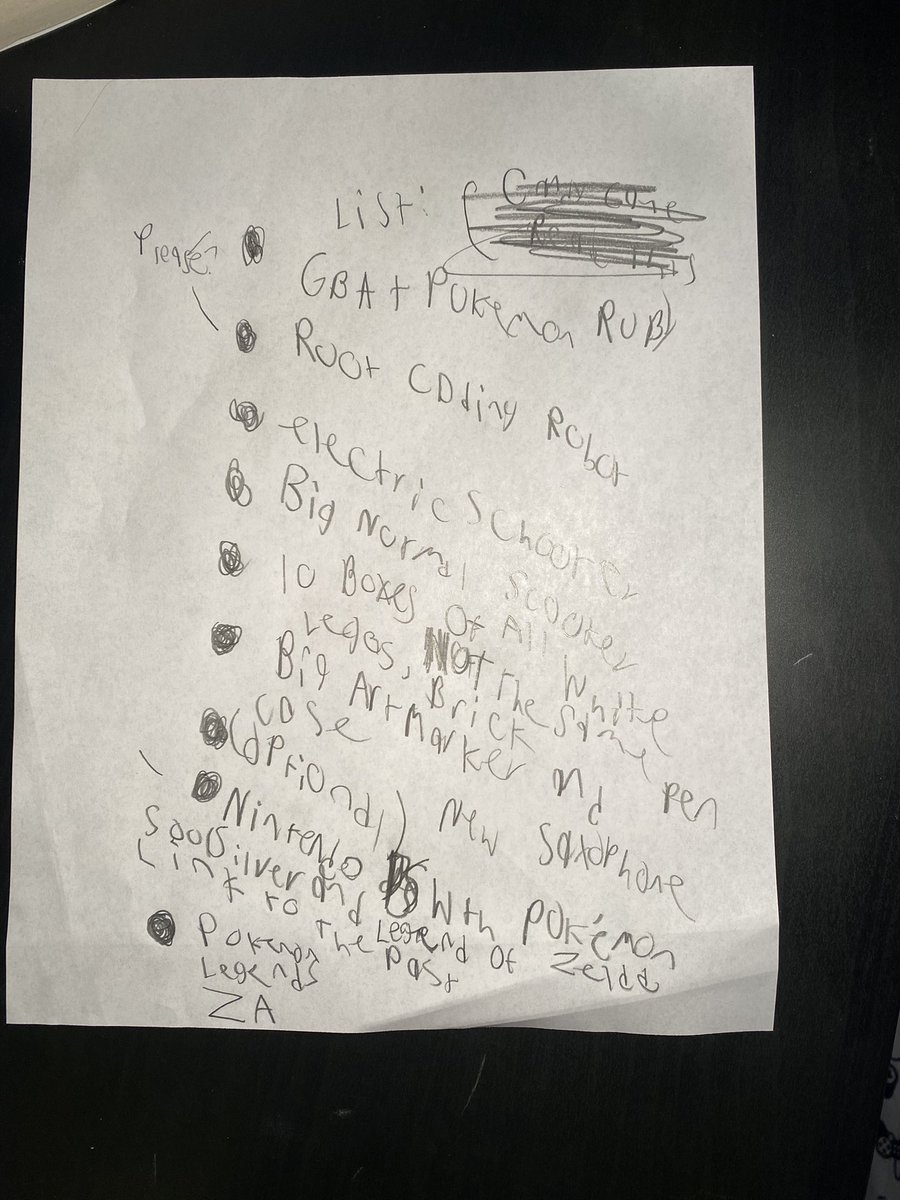 List:
Please?
GBA + Pokemon Ruby
Root CDding Robot
electric Schooter
Big Normal Scooter
10 Boxes Of All White
Legos, NOT The Same Brick
Big Art Marker nd Pen
Case
(optional) New Saxophone
Nintendo DS With Pokémon
Soul Silver and Legend Of Zelda
Link to the Past
Pokemon
Legends
ZA